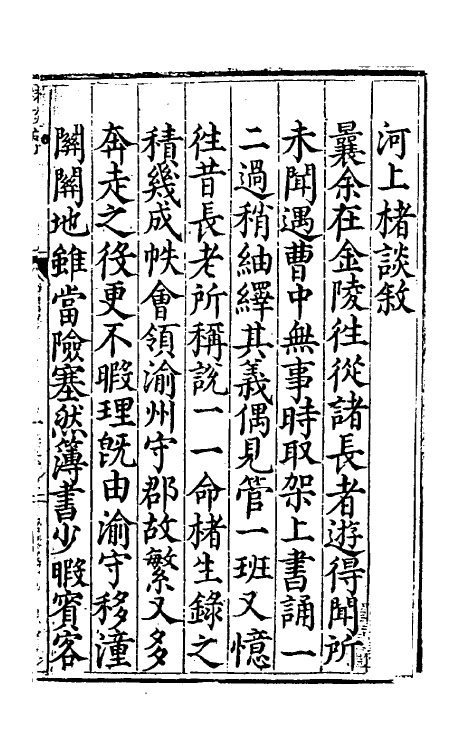 河上楮談敘
曩余在金陵往從諸長者遊得聞所
未聞遇曹中無事時取架上書誦一
二過稍紬繹其義偶見管一班又憶
往昔長老所稱說一一命楮生錄之
積幾成帙會領渝州守郡故繁又多
奔走之役更不暇理旣由渝守移潼
關關地雖當險塞然簿書少暇賓客